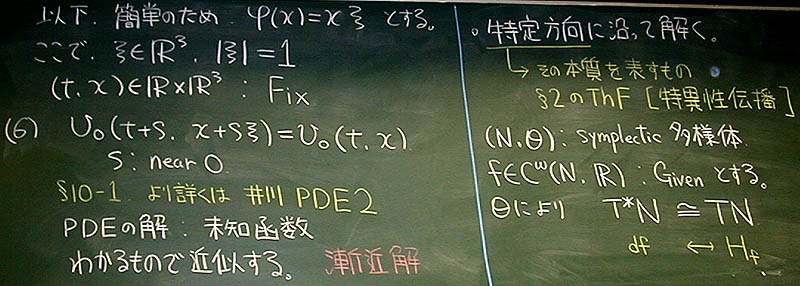 以下、簡単のため、φ(x)=xξ とする。
ここで、ξ∈ℝ³, |ξ|=1
(t, x)∈ℝ×ℝ³ : Fix
(6) U₀(t+s, x+sξ)=U₀(t, x)
s : near 0.
§10-1 より詳くは 井川 PDE2
PDEの解 : 未知函数
わかるもので近似する。 漸近解
○ 特定方向に沿って解く。
↳ その本質を表すもの
§2のThF [特異性伝播]
(N, θ) : symplectic 多様体
f∈C^ω(N, ℝ) : Given とする。
θにより T*N ≅ TN
df ↔ H_f